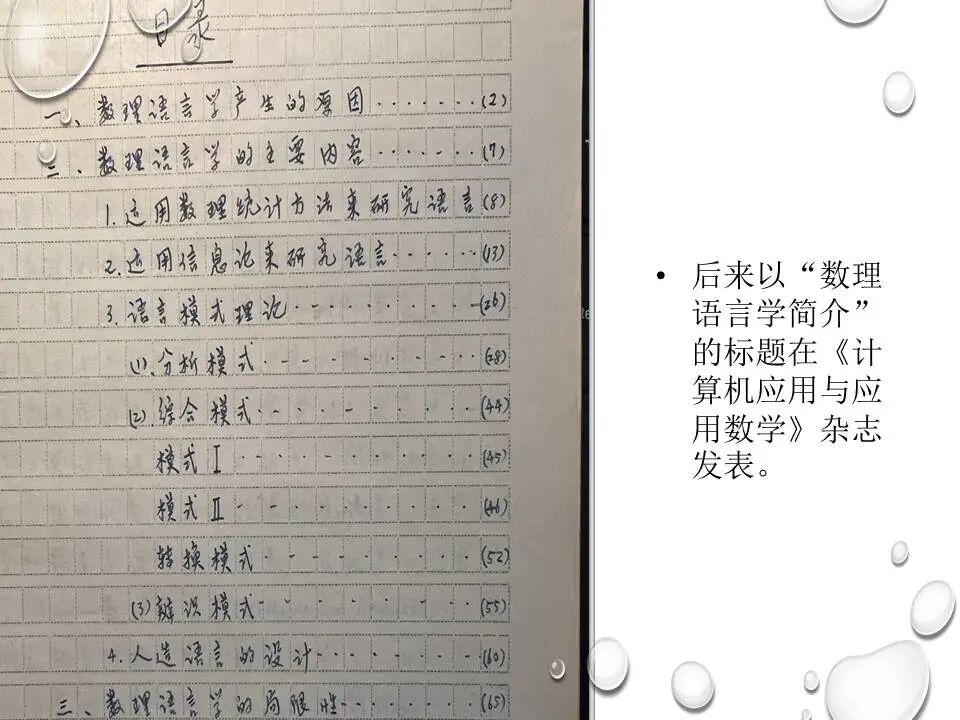 目录
一、数理语言学产生的原因.......(2)
二、数理语言学的主要内容.......(7)
1.运用数理统计方法来研究语言(8)
2.运用信息论来研究语言......(13)
3.语言模式理论........(26)
(1).分析模式.........(28)
(2).综合模式.........(44)
模式Ⅰ..........(45)
模式Ⅱ..........(46)
转换模式.........(52)
(3)辨识模式.........(55)
4.人造语言的设计.......(60)
三、数理语言学的局限性......(65)
• 后来以“数理
语言学简介”
的标题在《计
算机应用与应
用数学》杂志
发表。